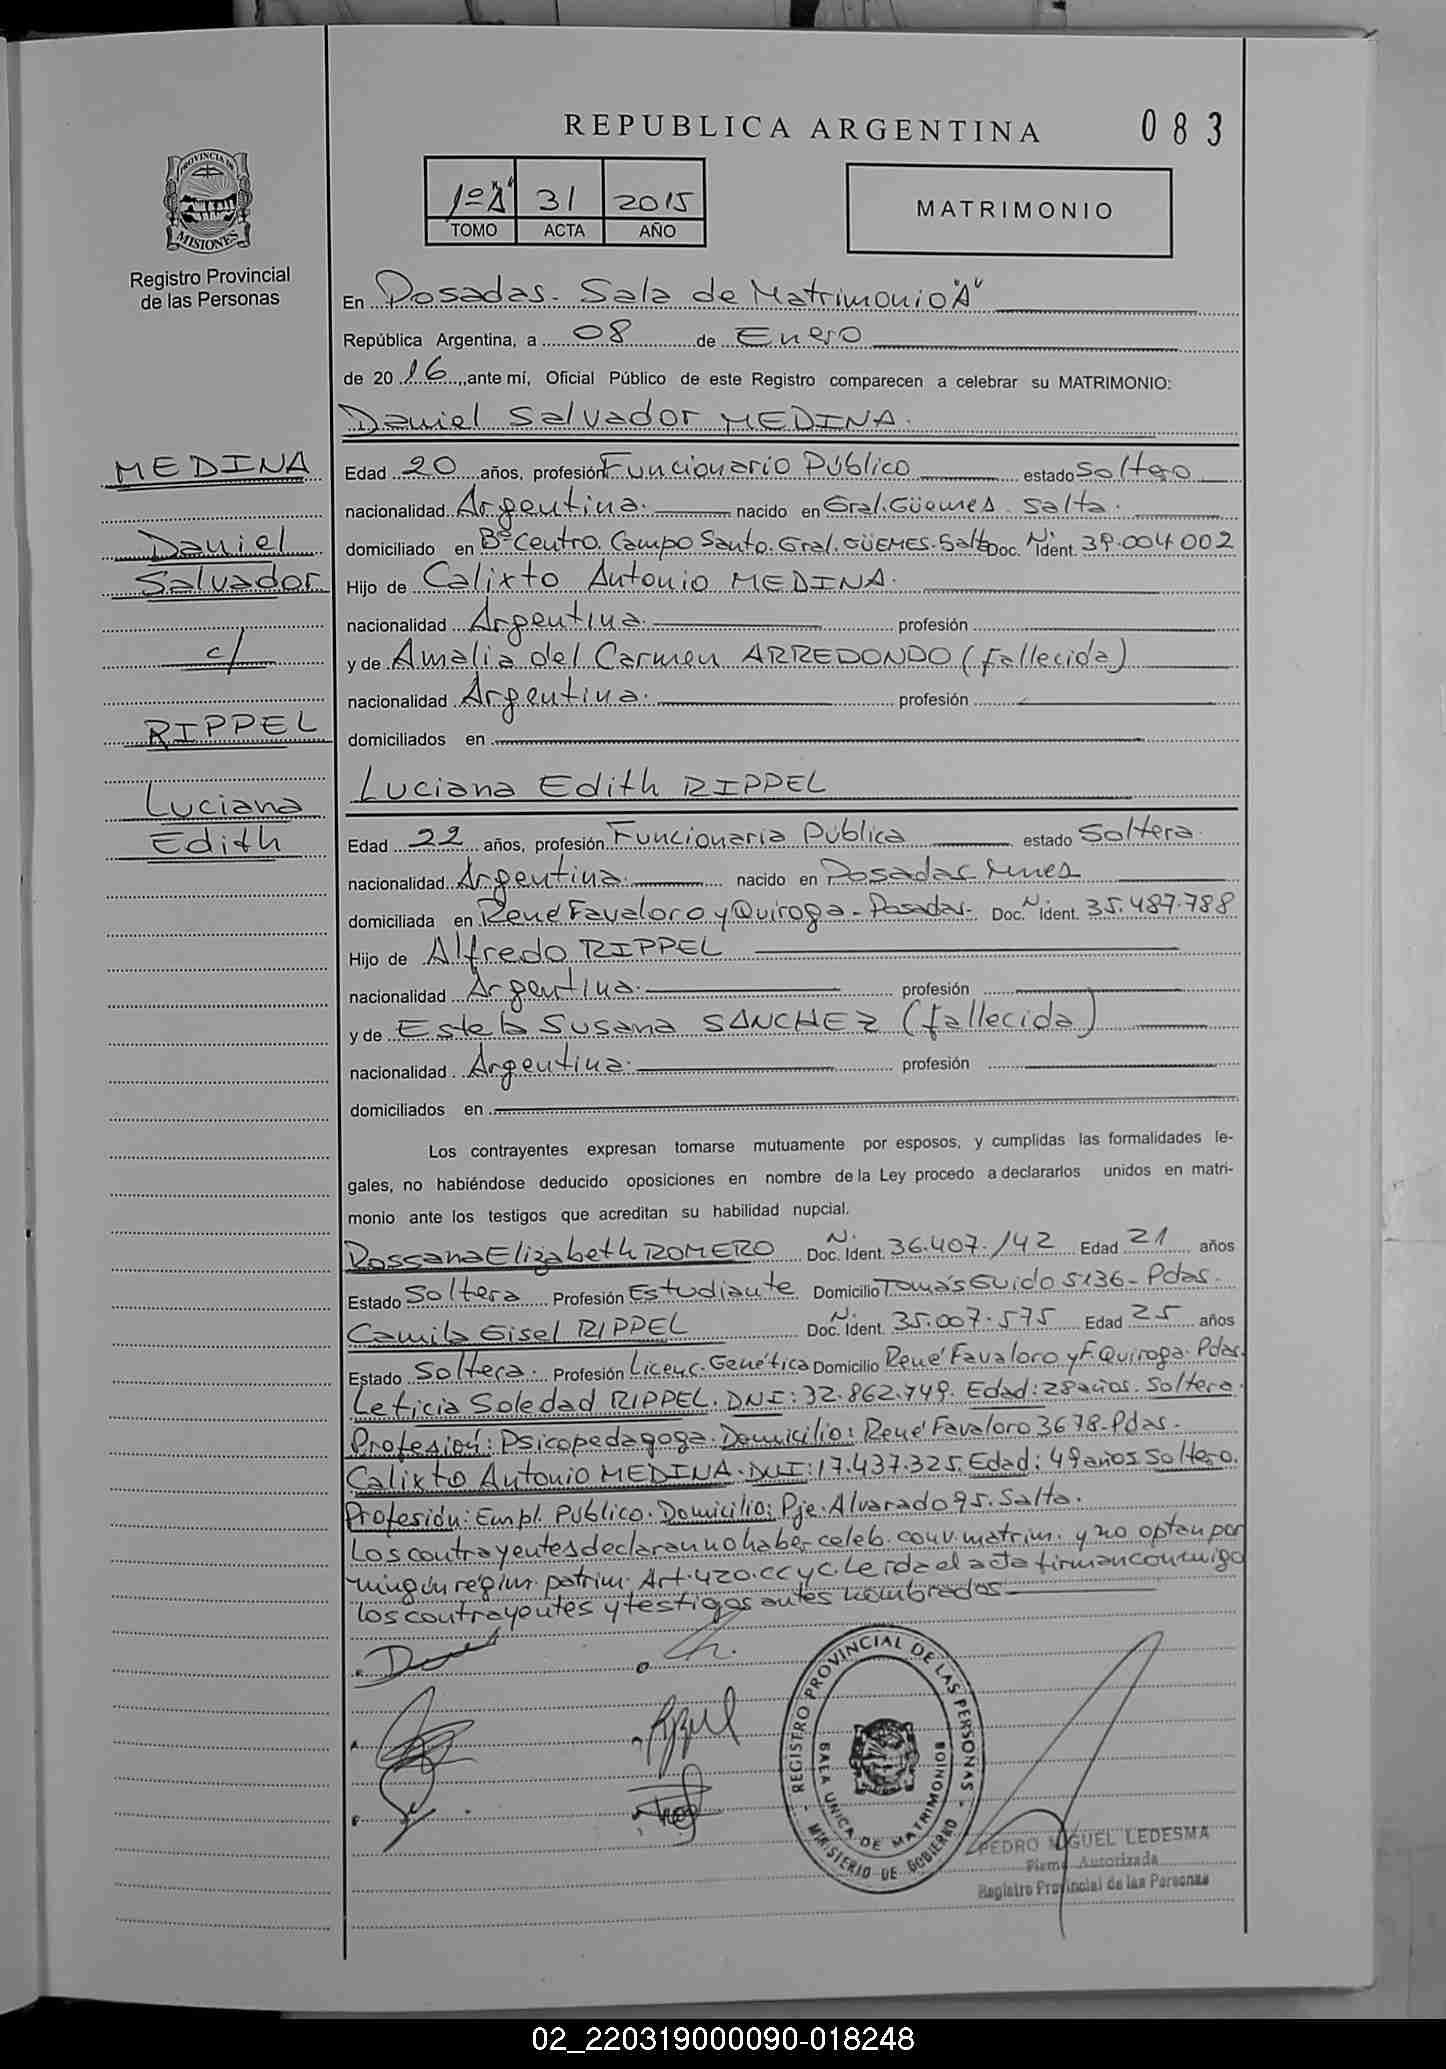 REPUBLICA ARGENTINA
083
1º "A" 31 2015
TOMO ACTA AÑO
MATRIMONIO
PROVINCIA DE
MISIONES
Registro Provincial
de las Personas
En Posadas. Sala de Matrimonio "A"
República Argentina, a 08 de Enero
de 2016, ante mí, Oficial Público de este Registro comparecen a celebrar su MATRIMONIO:
Daniel Salvador MEDINA.
MEDINA
Daniel
Salvador
c/
RIPPEL
Luciana
Edith
Edad 20 años, profesión Funcionario Público estado Soltero
nacionalidad Argentina. nacido en Gral. Güemes. Salta.
domiciliado en Bº Centro. Campo Santo. Gral. GÜEMES. Salta Doc. N Ident. 39.004.002
Hijo de Calixto Antonio MEDINA.
nacionalidad Argentina. profesión
y de Amalia del Carmen ARREDONDO (fallecida)
nacionalidad Argentina. profesión
domiciliados en
Luciana Edith RIPPEL
Edad 22 años, profesión Funcionaria Pública estado Soltera.
nacionalidad Argentina. nacido en Posadas Mnes
domiciliada en René Favaloro y Quiroga - Posadas- Doc. N Ident. 35.487.788
Hijo de Alfredo RIPPEL
nacionalidad Argentina. profesión
y de Estela Susana SANCHEZ (fallecida)
nacionalidad Argentina. profesión
domiciliados en
Los contrayentes expresan tomarse mutuamente por esposos, y cumplidas las formalidades le-
gales, no habiéndose deducido oposiciones en nombre de la Ley procedo a declararlos unidos en matri-
monio ante los testigos que acreditan su habilidad nupcial.
Rossana Elizabeth ROMERO Doc. N. Ident. 36.407.142 Edad 21 años
Estado Soltera Profesión Estudiante Domicilio Tomás Guido 5136 - Pdas.
Camila Gisel RIPPEL Doc. N. Ident. 35.007.575 Edad 25 años
Estado Soltera. Profesión Licenc. Genética Domicilio René Favaloro y F. Quiroga. Pdas.
Leticia Soledad RIPPEL. DNI: 32.862.749. Edad: 28 años. Soltera.
Profesión: Psicopedagoga. Domicilio: René Favaloro 3678-Pdas.
Calixto Antonio MEDINA. DNI: 17.437.325. Edad: 49 años Soltero.
Profesión: Empl. Publico. Domicilio: Pje. Alvarado 95. Salta.
Los contrayentes declaran no haber celeb. conv. matrim. y no optan por
ningún régim. patrim. Art. 420. CC y C. Leída el acta firman conmigo
los contrayentes y testigos antes nombrados
REGISTRO PROVINCIAL DE LAS PERSONAS
SALA UNICA DE MATRIMONIOS
MINISTERIO DE GOBIERNO
PEDRO MIGUEL LEDESMA
Firma Autorizada
Registro Provincial de las Personas
02_220319000090-018248